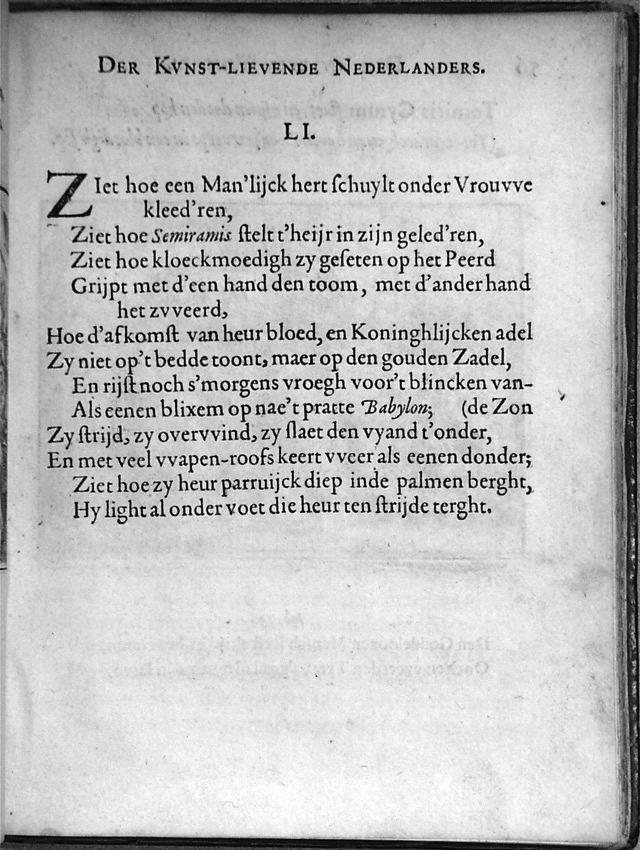 DER KVNST-LIEVENDE NEDERLANDERS.
LI.
ZIet hoe een Man'lijck hert ſchuylt onder Vrouvve
kleed'ren,
Ziet hoe Semiramis ſtelt t'heijr in zijn geled'ren,
Ziet hoe kloeckmoedigh zy geſeten op het Peerd
Grijpt met d'een hand den toom, met d'ander hand
het zvveerd,
Hoe d'afkomſt van heur bloed, en Koninghlijcken adel
Zy niet op't bedde toont, maer op den gouden Zadel,
En rijſt noch s'morgens vroegh voor't blincken van-
Als eenen blixem op nae't pratte Babylon; (de Zon
Zy ſtrijd, zy overvvind, zy ſlaet den vyand t'onder,
En met veel vvapen-roofs keert vveer als eenen donder;
Ziet hoe zy heur parruijck diep inde palmen berght,
Hy light al onder voet die heur ten ſtrijde terght.